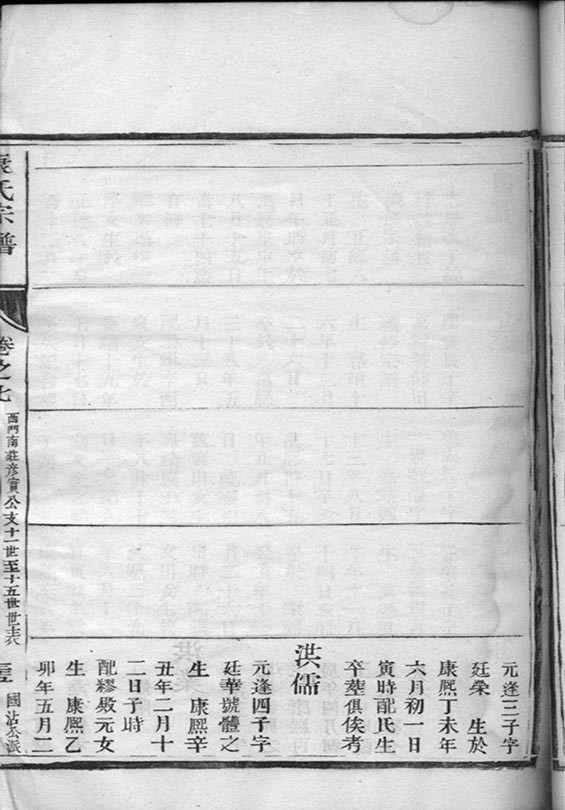 元逢三子字
廷棨　生於
康熙丁未年
六月初一日
寅時配氏生
卒塟俱俟考
洪儒
元逢四子字
廷華號體之
生　康熙辛
丑年二月十
二日子時
配繆殿元女
生　康熙乙
卯年五月二
氏宗譜
卷之七
西門南莊彥實公支十一世至十五世世表
國沾公派